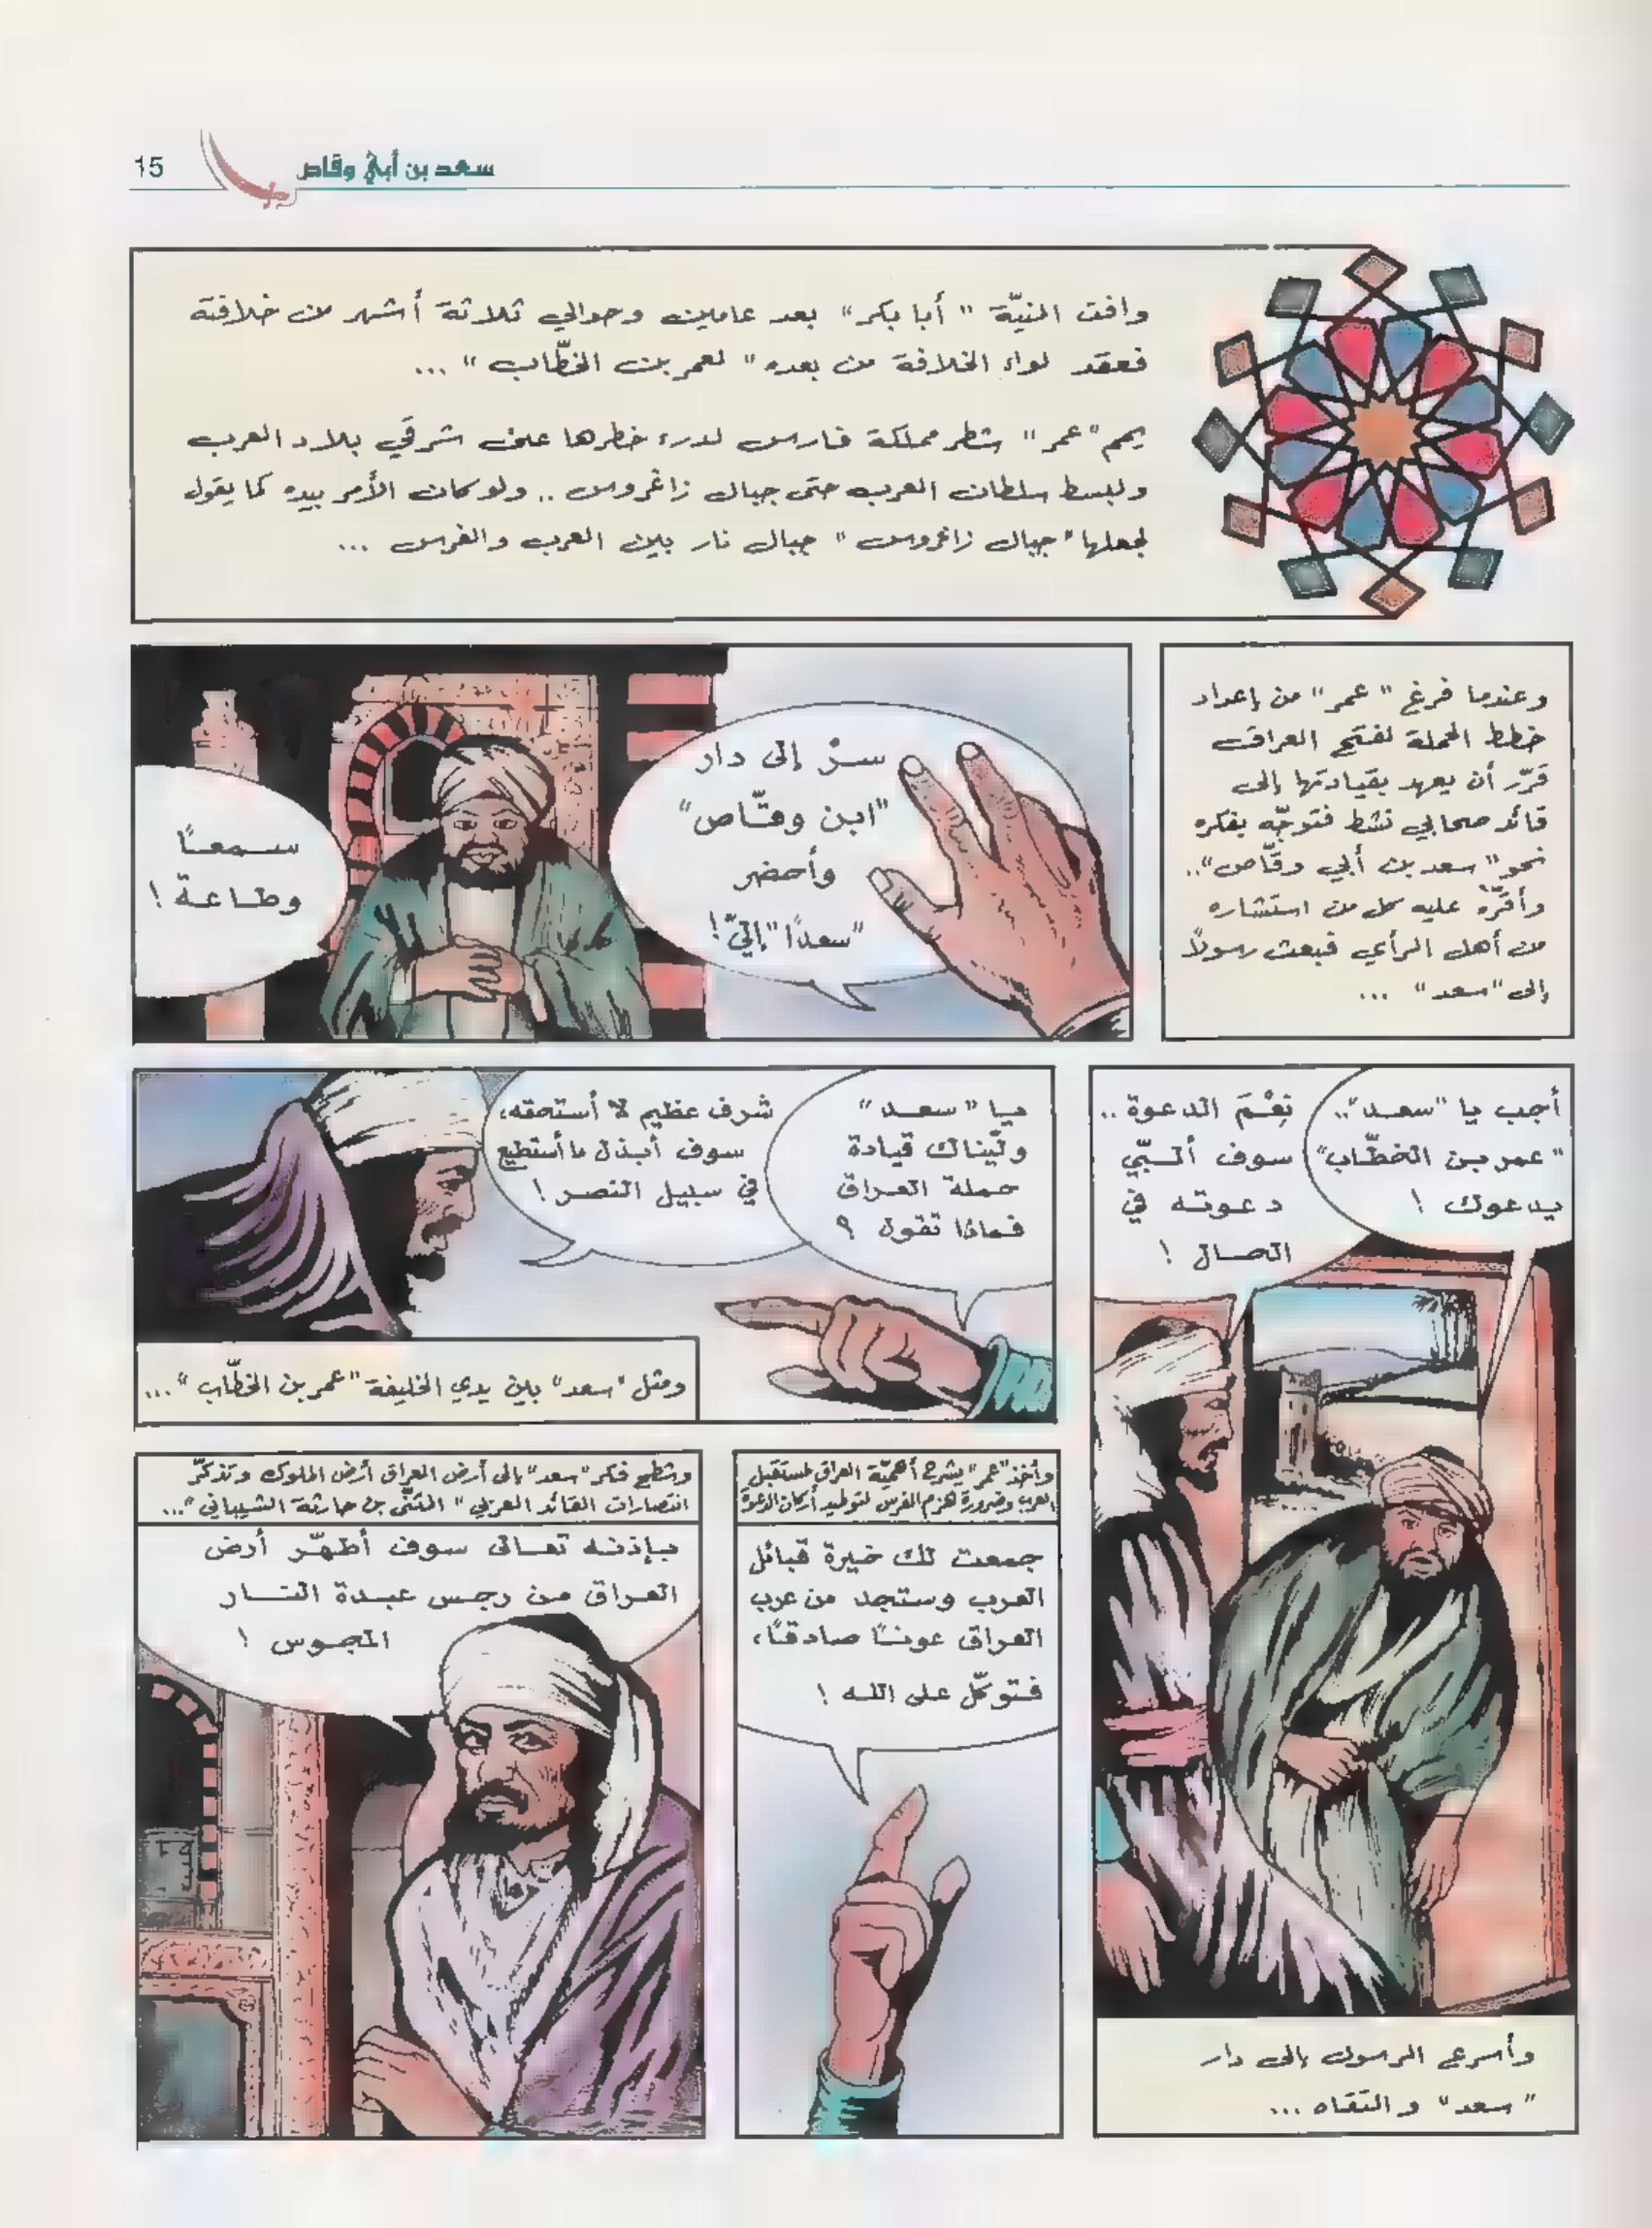 سعد بن أبي وقاص
15
وافت المنيّة "أبا بكر" بعد عامين وحوالي ثلاثة أشهر من خلافته
فعقد لواء الخلافة من بعده "لعمر بن الخطّاب" ...
يمم "عمر" شطر مملكة فارس لدرء خطرها على شرقي بلاد العرب
ولبسط سلطان العرب حتى جبال زاغروس .. ولو كان الأمر بيده كما يقول
لجعلها "جبال زاغروس" جبال نار بين العرب والفرس ...
وعندما فرغ "عمر" من إعداد
خطط الحملة لفتح العراق
قرّر أن يعهد بقيادتها إلى
قائد صحابي نشط فتوجّه بفكره
نحو "سعد بن أبي وقّاص"..
وأقرّهُ عليه كل من استشاره
من أهل الرأي فبعث رسولاً
إلى "سعد" ...
سرْ إلى دار
"ابن وقّاص"
وأحضر
"سعدًا" إليّ!
سمعًا
وطاعة !
أجب يا "سعد"..
"عمر بن الخطّاب"
يدعوك !
نِعْمَ الدعوة ..
سوف ألبّي
دعوته في
الحال !
وأسرع الرسول إلى دار
"سعد" والتقاه ...
يا "سعد"
ولّيناك قيادة
حملة العراق
فماذا تقول ؟
شرف عظيم لا أستحقه،
سوف أبذل ما أستطيع
في سبيل النصر !
ومثل "سعد" بين يدي الخليفة "عمر بن الخطّاب" ...
وأخذ "عمر" يشرح أهميّة العراق لمستقبل
العرب وضرورة هزم الفرس لتوطيد أركان الدعوة
جمعت لك خيرة قبائل
العرب وستجد من عرب
العراق عونًا صادقًا،
فتوكّل على الله !
وشطح فكر "سعد" إلى أرض العراق أرض الملوك وتذكّر
انتصارات القائد العربي "المثنّى بن حارثة الشيباني" ...
بإذنه تعالى سوف أطهّر أرض
العراق من رجس عبدة النار
المجوس !